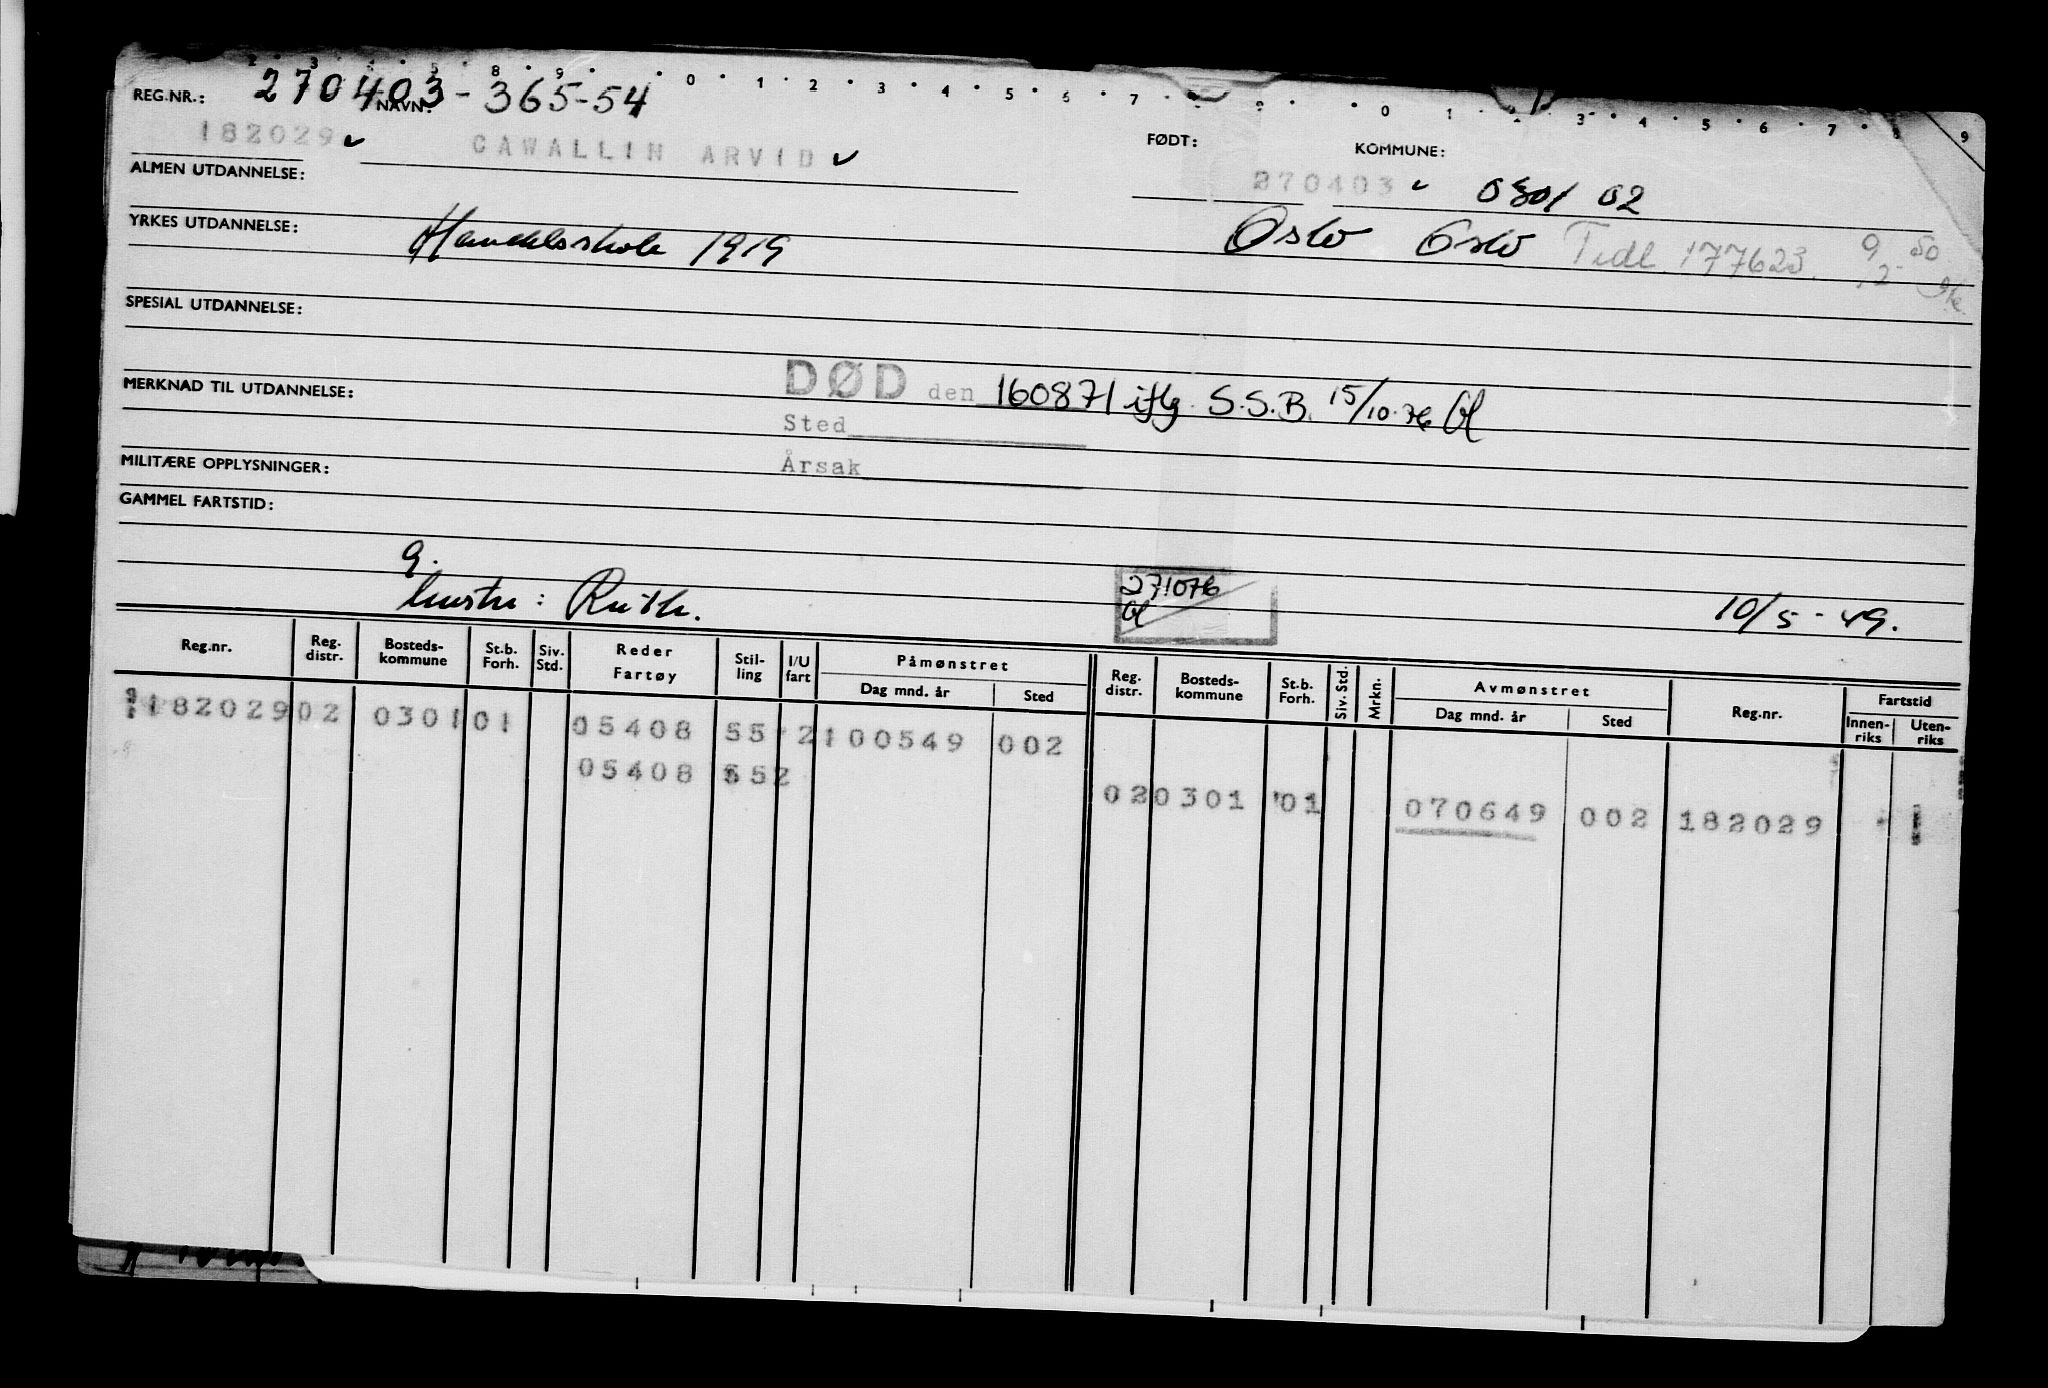 2 3 4 5 8 9 0 1 2 3 4 5 6 7 0 1 2 3 4 5 6 7 8 9
REG.NR.: 270403-365-54
NAVN: FØDT: KOMMUNE:
182029 ✓ CAWALLIN ARVID ✓ 270403 ✓ 0301 02
ALMEN UTDANNELSE:
YRKES UTDANNELSE: Handelsskole 1919 Oslo Oslo Tidl. 177623. 9/2-50
SPESIAL UTDANNELSE:
MERKNAD TIL UTDANNELSE: DØD den 160871 iflg. S.S.B. 15/10.76
Sted
MILITÆRE OPPLYSNINGER: Årsak
GAMMEL FARTSTID:
g.
hustru: Ruth. 271076 10/5-49.
Reg.nr. Reg. distr. Bosteds-kommune St.b. Forh. Siv. Std. Reder Fartøy Stil-ling I/U fart Påmønstret Dag mnd. år Sted Reg. distr. Bosteds-kommune St.b. Forh. Siv. Std. Mrkn. Avmønstret Dag mnd. år Sted Reg.nr. Fartstid Innen-riks Uten-riks
182029 02 0301 01 05408 55 2 100549 002
05408 552 02 0301 01 070649 002 182029 1